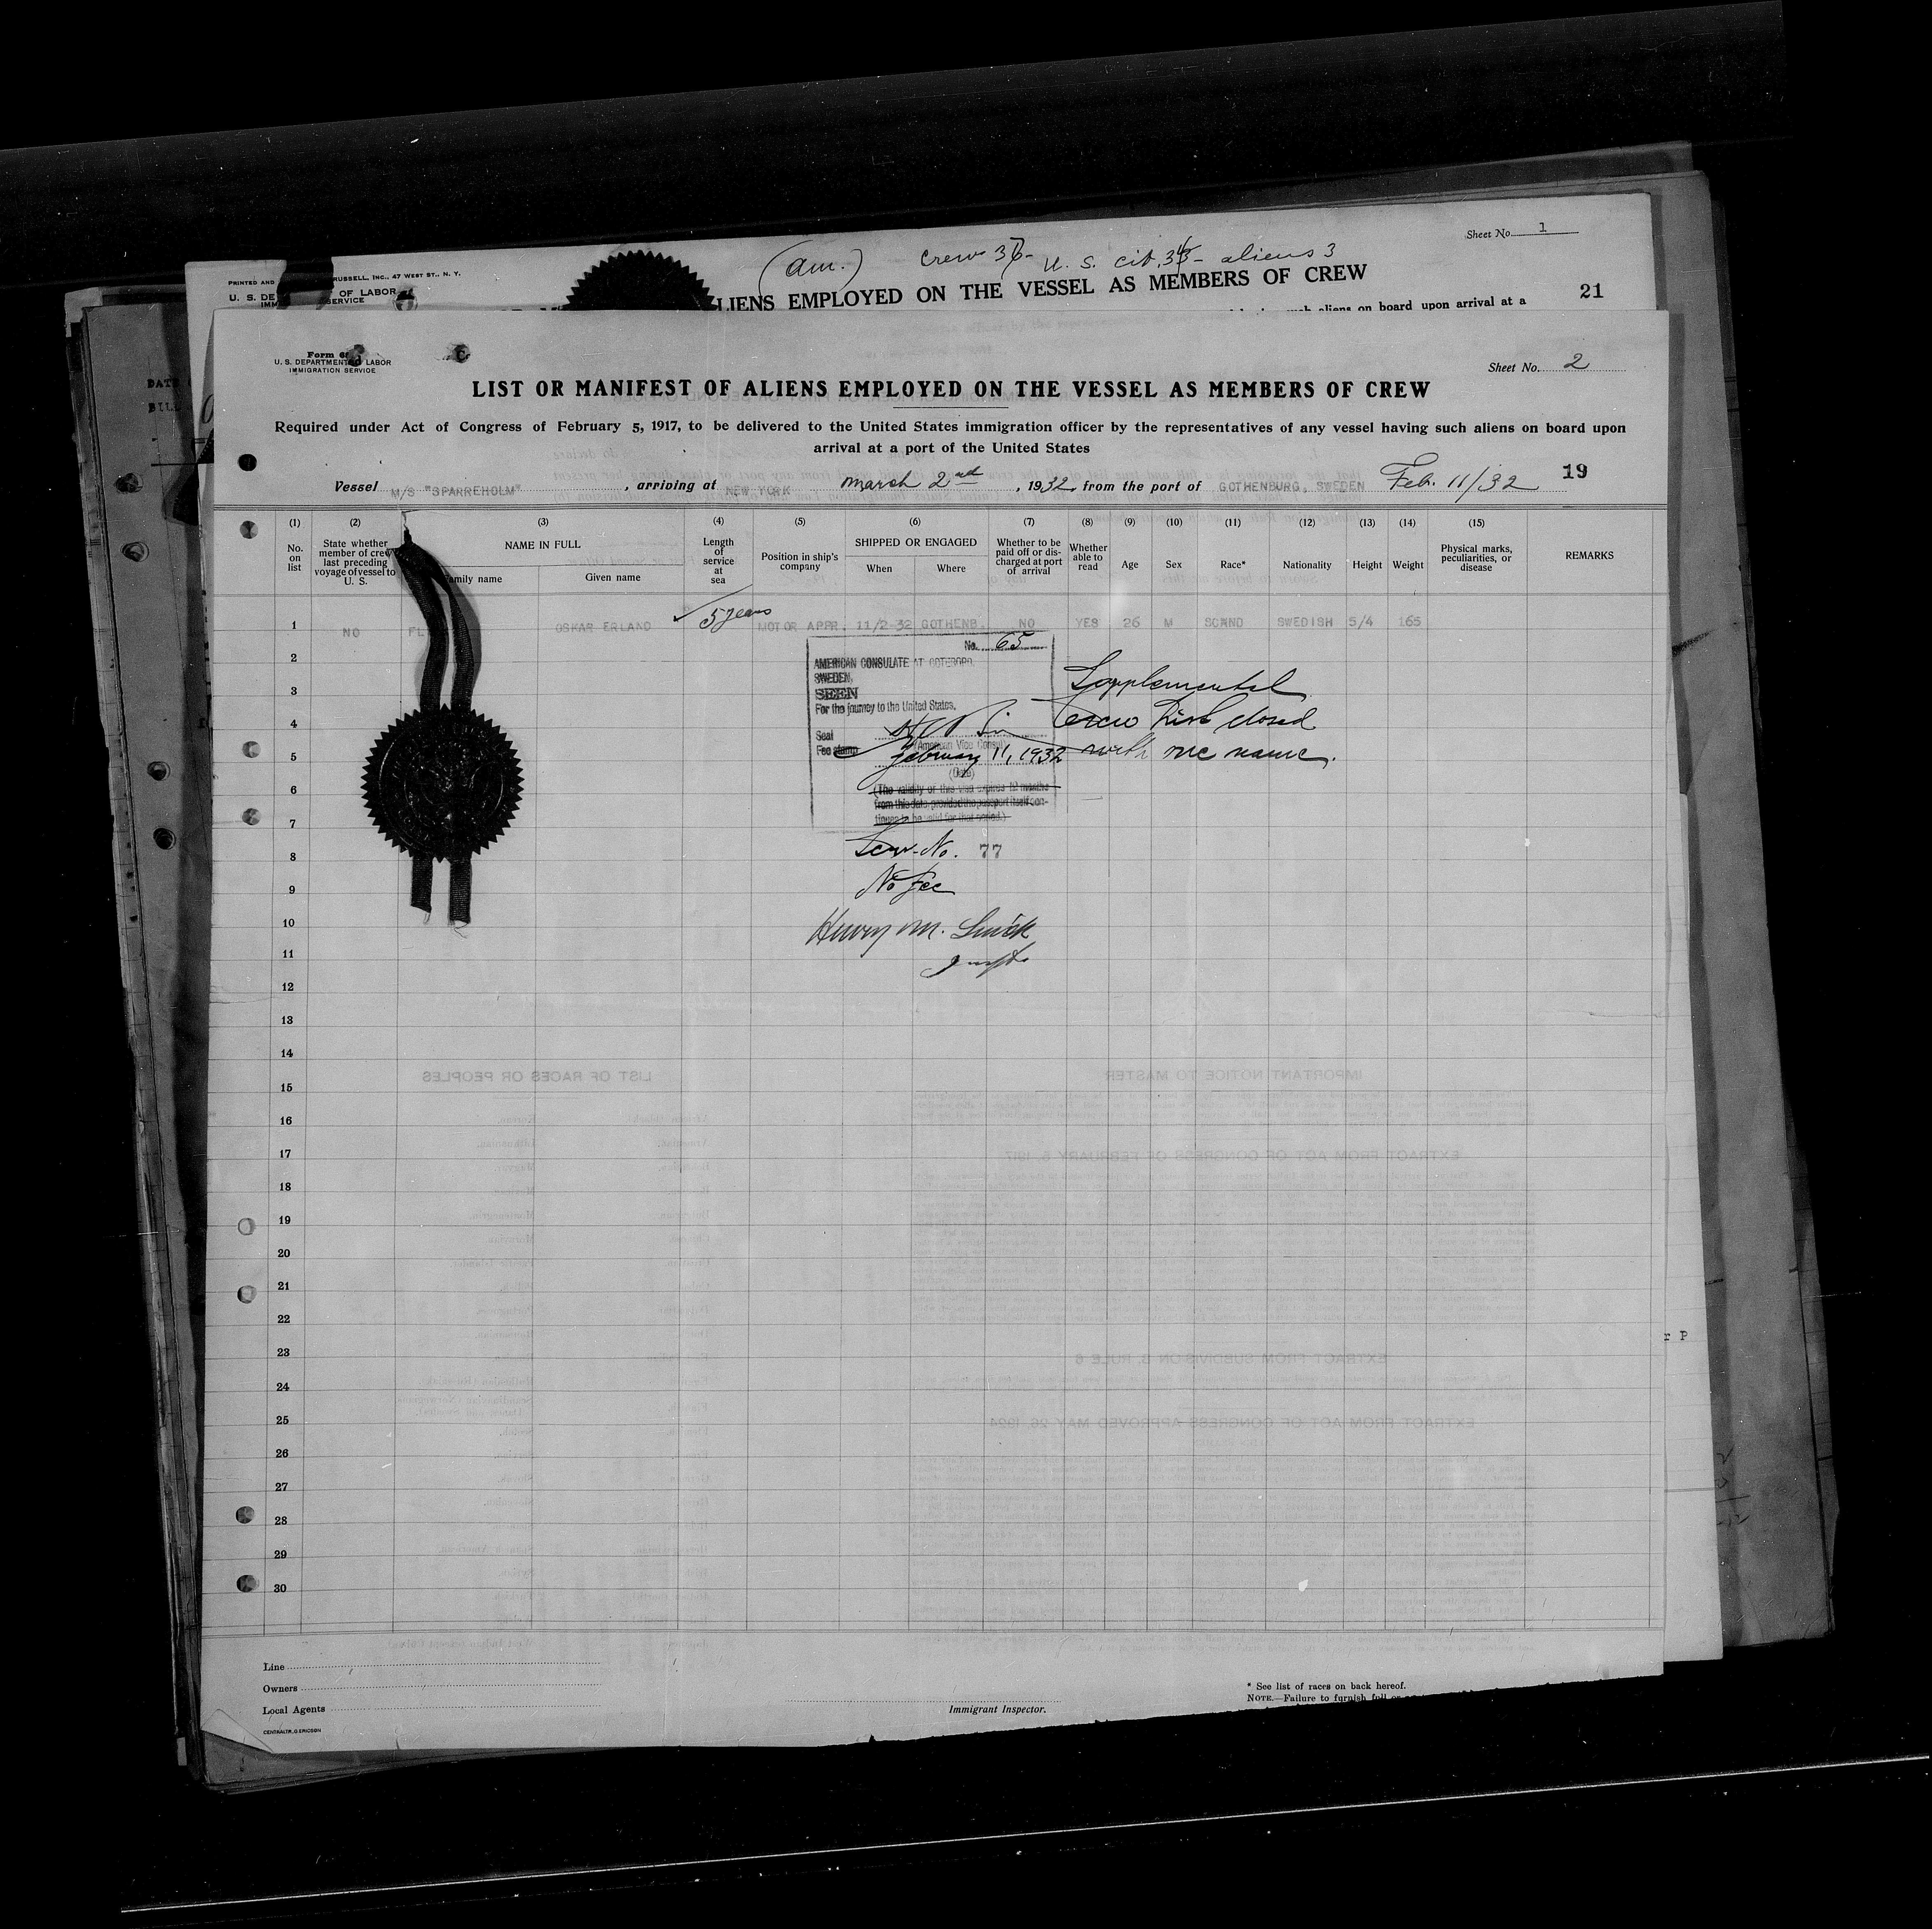 Sheet No. 1
(am.) crew 36- U. S. cit. 33- aliens 3
PRINTED AND RUSSELL, INC., 47 WEST ST., N. Y.
U. S. DE OF LABOR
IMM SERVICE
LIENS EMPLOYED ON THE VESSEL AS MEMBERS OF CREW
21
such aliens on board upon arrival at a
DATE
BILL
Form 6
U. S. DEPARTMENT LABOR
IMMIGRATION SERVICE
Sheet No. 2
LIST OR MANIFEST OF ALIENS EMPLOYED ON THE VESSEL AS MEMBERS OF CREW
Required under Act of Congress of February 5, 1917, to be delivered to the United States immigration officer by the representatives of any vessel having such aliens on board upon
arrival at a port of the United States
Vessel M/S "SPARREHOLM", arriving at NEW YORK March 2nd, 1932, from the port of GOTHENBURG, SWEDEN Feb. 11/32 19
(1) (2) (3) (4) (5) (6) (7) (8) (9) (10) (11) (12) (13) (14) (15)
No. on list
State whether member of crew last preceding voyage of vessel to U. S.
NAME IN FULL
amily name
Given name
Length of service at sea
Position in ship's company
SHIPPED OR ENGAGED
When
Where
Whether to be paid off or discharged at port of arrival
Whether able to read
Age
Sex
Race*
Nationality
Height
Weight
Physical marks, peculiarities, or disease
REMARKS
1 NO FL OSKAR ERLAND 5 years MOTOR APPR. 11/2-32 GOTHENB. NO YES 26 M SCAND SWEDISH 5/4 165
No. 65
AMERICAN CONSULATE AT GOTEBORG,
SWEDEN,
SEEN
For the journey to the United States,
Seal
(American Vice Consul)
Fee stamp
February 11, 1932
(Date)
(The validity of this visa expires 12 months
from this date provided the passport itself con-
tinues to be valid for that period.)
Supplemental
Crew List closed
with one name.
Serv. No. 77
No fee
Henry M.
2
3
4
5
6
7
8
9
10
11
12
13
14
15
16
17
18
19
20
21
22
23
24
25
26
27
28
29
30
r P
Line
Owners
Local Agents
CENTRALTR. G ERICSON
Immigrant Inspector.
* See list of races on back hereof.
NOTE.—Failure to furnish full or